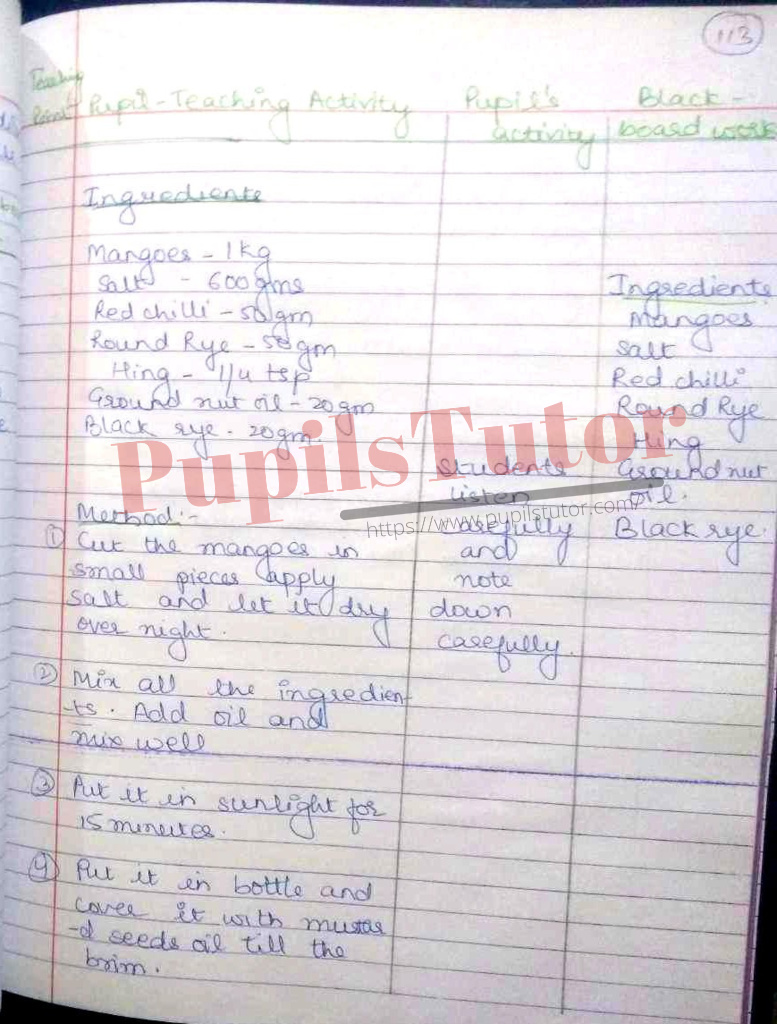 113
Teaching
Point
Pupil-Teaching Activity
Pupil's
activity
Black-
board work
Ingredients
Mangoes - 1kg
Salt - 600 gms
Red chilli - 50 gm
Round Rye - 50 gm
Hing - 1/4 tsp
Ground nut oil - 20 gm
Black rye - 20 gm.
Method:-
① Cut the mangoes in
small pieces apply
salt and let it dry
over night.
② Mix all the ingredien-
ts. Add oil and
mix well
③ Put it in sunlight for
15 minutes.
④ Put it in bottle and
cover it with mustar
-d seeds oil till the
brim.
Students
listen
carefully
and
note
down
carefully.
Ingredients
Mangoes
Salt
Red chilli
Round Rye
Hing
Ground nut
oil.
Black rye.
PupilsTutor
https://www.pupilstutor.com/